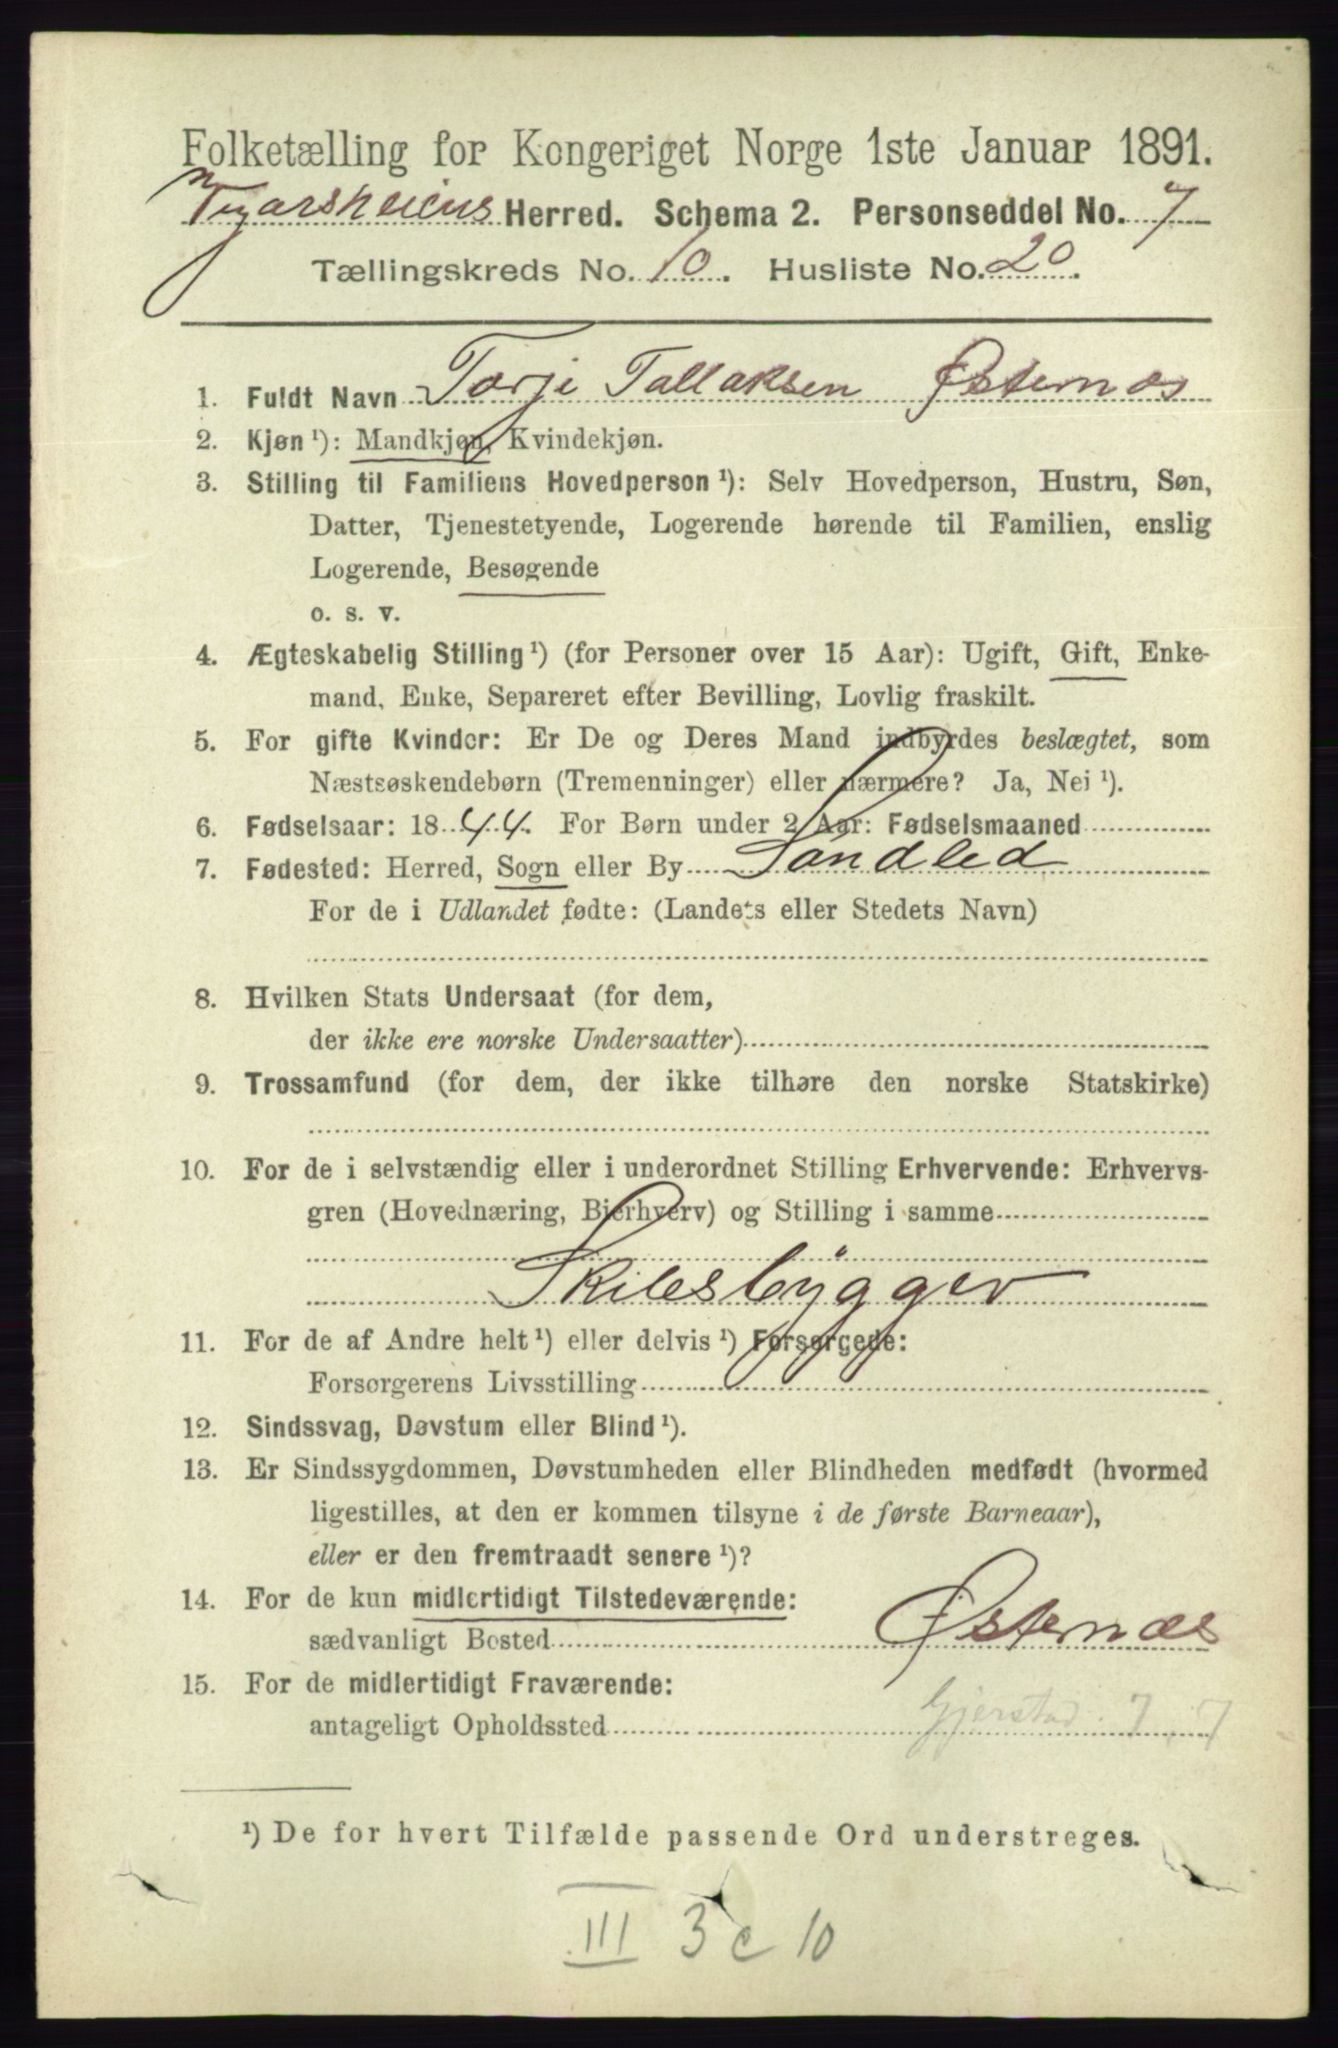 Folketælling for Kongeriget Norge 1ste Januar 1891.
Herred. Schema 2. Personseddel No. 7
Tællingskreds No. 10. Husliste No. 20.
1. Fuldt Navn Torje Tallaksen Østernæs
2. Kjøn ¹): Mandkjøn, Kvindekjøn.
3. Stilling til Familiens Hovedperson ¹): Selv Hovedperson, Hustru, Søn,
Datter, Tjenestetyende, Logerende hørende til Familien, enslig
Logerende, Besøgende
o. s. v.
4. Ægteskabelig Stilling ¹) (for Personer over 15 Aar): Ugift, Gift, Enke-
mand, Enke, Separeret efter Bevilling, Lovlig fraskilt.
5. For gifte Kvinder: Er De og Deres Mand indbyrdes beslægtet, som
Næstsøskendebørn (Tremenninger) eller nærmere? Ja, Nei ¹).
6. Fødselsaar: 1844. For Børn under 2 Aar: Fødselsmaaned
7. Fødested: Herred, Sogn eller By Søndled
For de i Udlandet fødte: (Landets eller Stedets Navn)
8. Hvilken Stats Undersaat (for dem,
der ikke ere norske Undersaatter)
9. Trossamfund (for dem, der ikke tilhøre den norske Statskirke)
10. For de i selvstændig eller i underordnet Stilling Erhvervende: Erhvervs-
gren (Hovednæring, Bierhverv) og Stilling i samme
Skibsbygger
11. For de af Andre helt ¹) eller delvis ¹) Forsørgede:
Forsørgerens Livsstilling
12. Sindssvag, Døvstum eller Blind ¹).
13. Er Sindssygdommen, Døvstumheden eller Blindheden medfødt (hvormed
ligestilles, at den er kommen tilsyne i de første Barneaar),
eller er den fremtraadt senere ¹)?
14. For de kun midlertidigt Tilstedeværende:
sædvanligt Bosted Østernæs
15. For de midlertidigt Fraværende:
antageligt Opholdssted Gjerstad. 7, 7
¹) De for hvert Tilfælde passende Ord understreges.
III 3 c 10